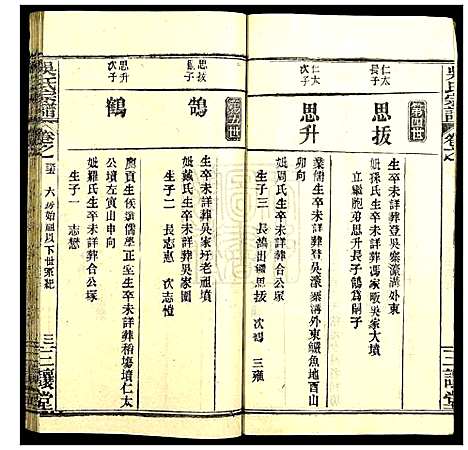 吳氏宗譜
卷之
第四世
仁太長子
思拔
生卒未詳葬登吳寨濠溝外東
妣孫氏生卒未詳葬馮家畈吳家大墳
立繼胞弟思升長子鵠為嗣子
仁太次子
思升
業儒生卒未詳葬登吳濠溝外東鱷魚地酉山
卯向
妣周氏生卒未詳葬合公塚
生子三 長鵠出繼思拔 次鶴 三雍
第五世
思拔嗣子
鵠
生卒未詳葬吳家圩老祖墳
妣戴氏生卒未詳葬吳家園
生子二 長志惠 次志愷
思升次子
鶴
廩貢生候選儒學正堂生卒未詳葬稻塲墳仁太
公墳左寅山申向
妣羅氏生卒未詳葬合公塚
生子一 志懋
吳氏宗譜
卷之
六房始祖以下世系紀
三讓堂